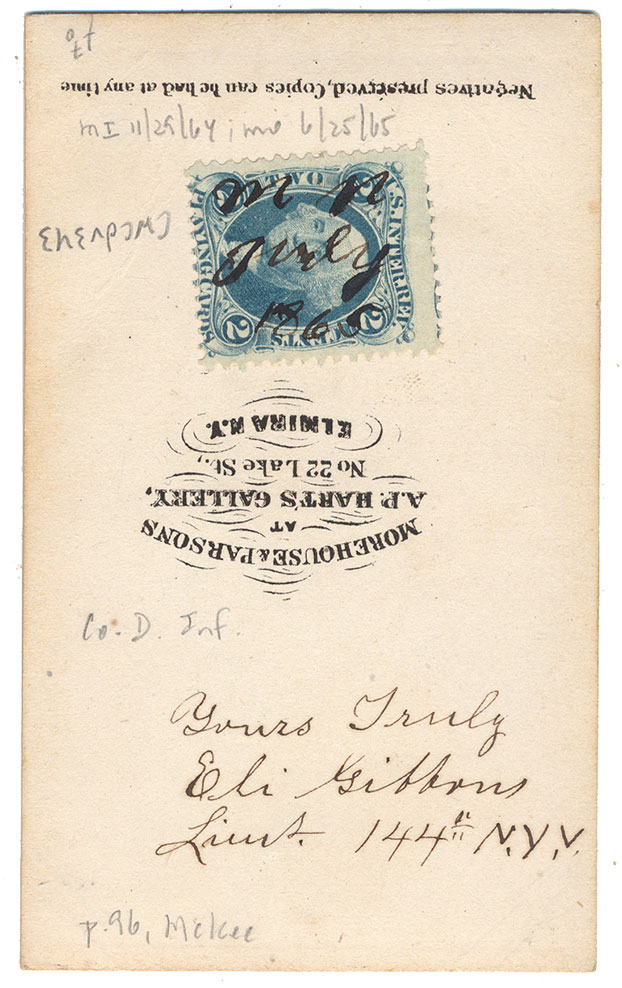 Negatives preserved, Copies can be had at any time
mI 11/29/64; mo 6/25/65
U.S. INTER. REV.
PLAYING CARDS
2 CENTS 2
July
1865
MOREHOUSE & PARSONS
AT
A.P. HART'S GALLERY,
No 22 Lake St.,
ELMIRA N.Y.
Co. D. Inf.
Yours Truly
Eli Gibbons
Lieut. 144th N.Y.V.
p. 96, McKee